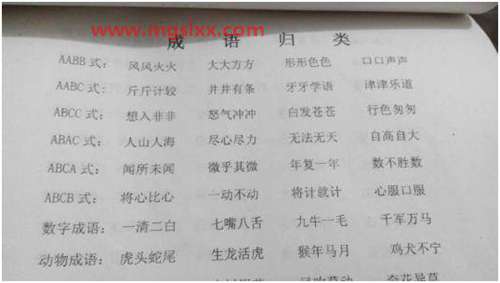 www.mgslxx.com
成 语 归 类
AABB 式： 风风火火 大大方方 形形色色 口口声声
AABC 式： 斤斤计较 井井有条 牙牙学语 津津乐道
ABCC 式： 想入非非 怒气冲冲 白发苍苍 行色匆匆
ABAC 式： 人山人海 尽心尽力 无法无天 自高自大
ABCA 式： 闻所未闻 微乎其微 年复一年 数不胜数
ABCB 式： 将心比心 一动不动 将计就计 心服口服
数字成语： 一清二白 七嘴八舌 九牛一毛 千军万马
动物成语： 虎头蛇尾 生龙活虎 猴年马月 鸡犬不宁